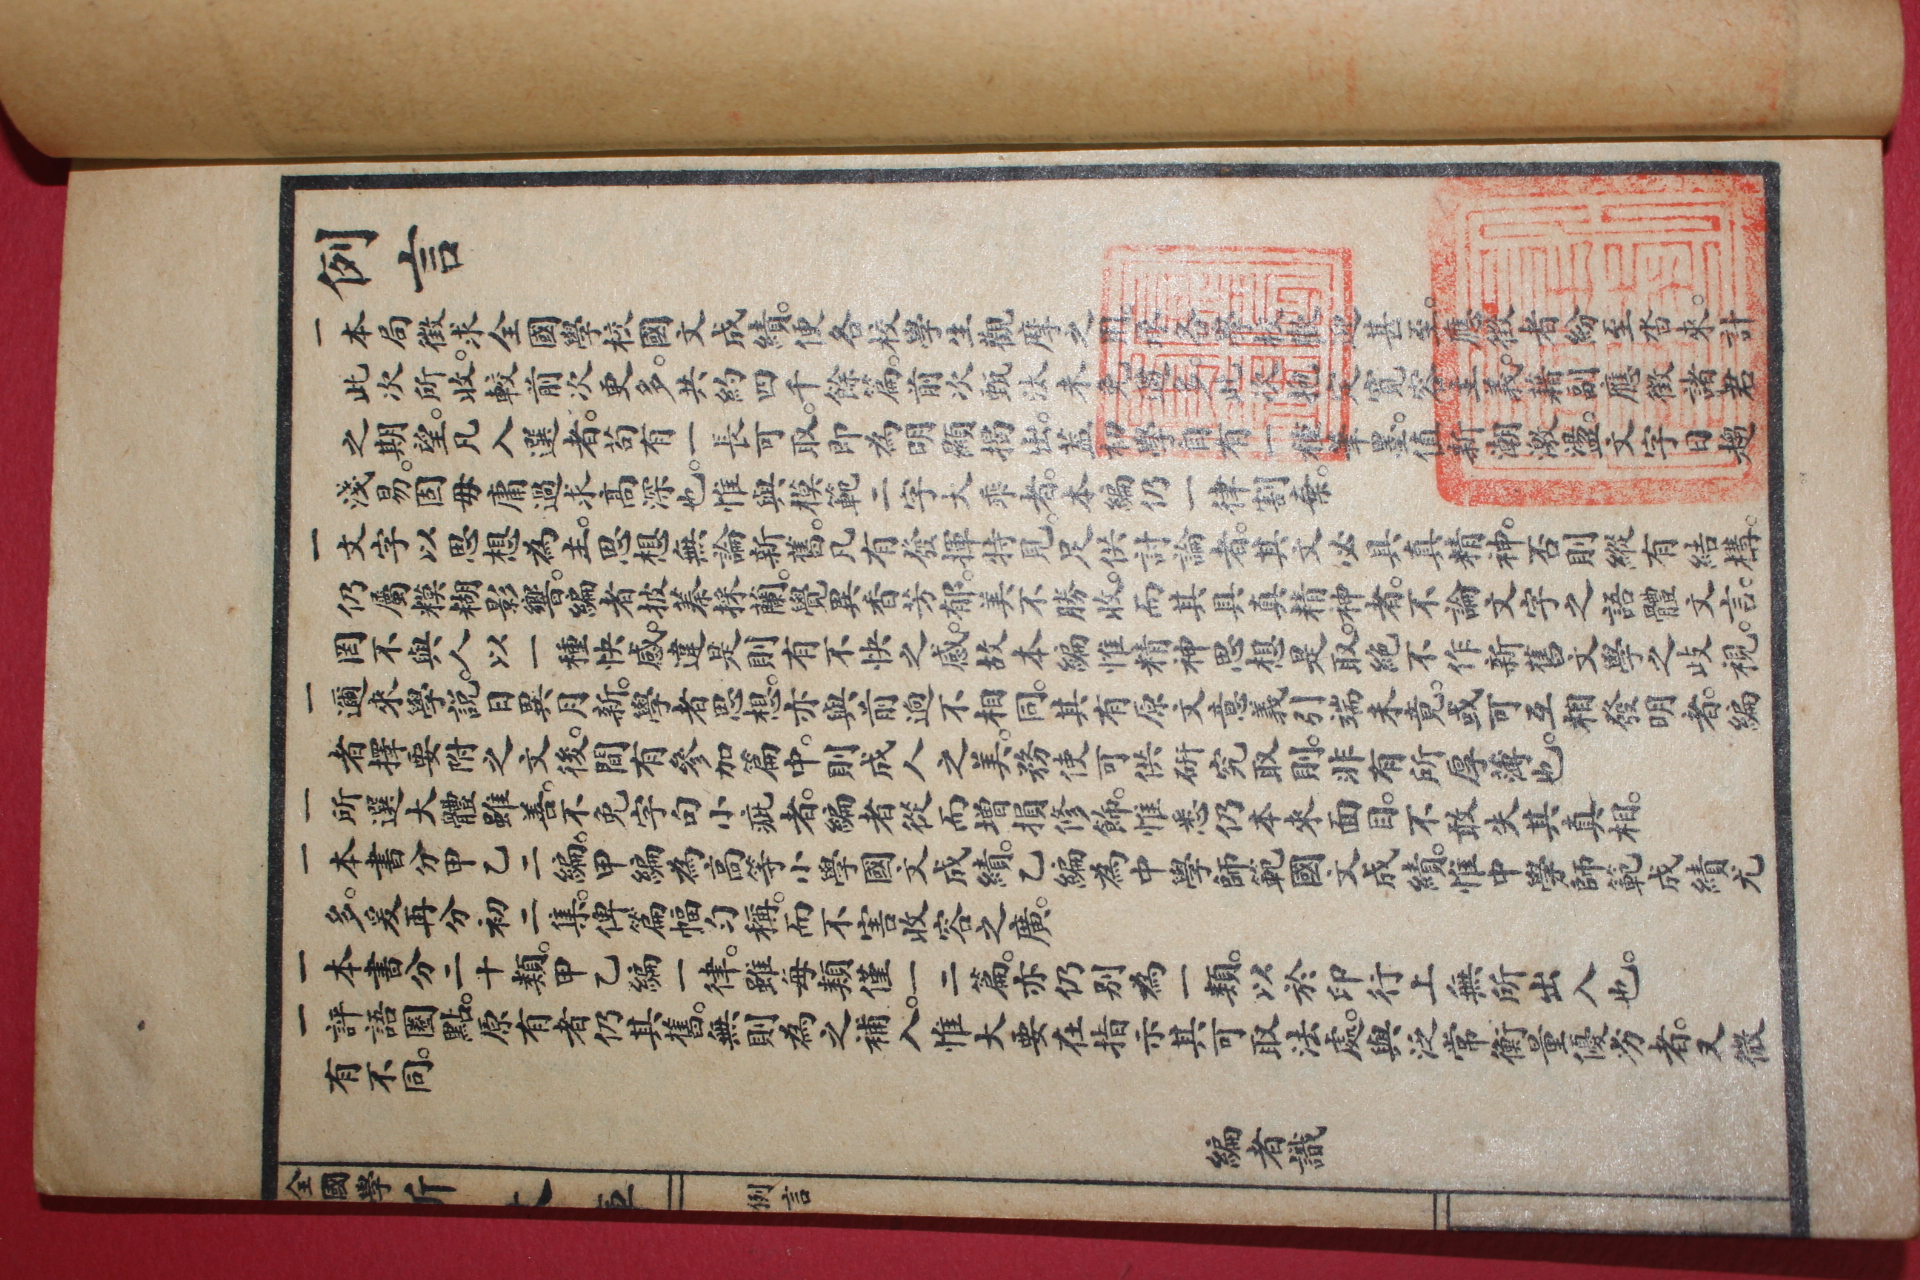 例言
一本局徵求全國學校國文成績。便各校學生觀摩之用。各 甚至。應徵者紛至沓來。計
此次所收。較前次更多。共約四千餘篇。前次甄汰未免 此次 寬容主義。藉副應徵諸君
之期望。凡入選者。苟有一長可取。即為明顯揭出。蓋初學自有一種筆墨。值新潮激盪。文字日趨
淺易。固毋庸過求高深也。惟與模範二字大乖者。本編仍一律割棄。
一文字以思想為主。思想無論新舊。凡有發揮特見。足供討論者。其文必具真精神。否則縱有結構。
仍屬糢糊影響。編者披蓁採蘭。覺異香芳郁。美不勝收。而其具真精神者。不論文字之語體文言。
罔不與人以一種快感。違是則有不快之感。故本編惟精神思想是取。絕不作新舊文學之歧視。
一邇來學說。日異月新。學者思想。亦與前迥不相同。其有原文意義引端未竟。或可互相發明者。編
者擇要附之文後。間有參加篇中。則成人之美。務使可供研究取則。非有所厚薄也。
一所選大體雖善。不免字句小疵者。編者從而增損修飾。惟悉仍本來面目。不敢失其真相。
一本書分甲乙二編。甲編為高等小學國文成績。乙編為中學師範國文成績。惟中學師範成績尤
多。爰再分初二集。俾篇幅勻稱。而不害收容之廣。
一本書分二十類。甲乙編一律。雖每類僅一二篇。亦仍別為一類。以於印行上無所出入也。
一評語圈點。原有者仍其舊。無則為之補入。惟大要在指示其可取法處。與泛常衡量優劣者。又微
有不同。
編者識
全國學
例言